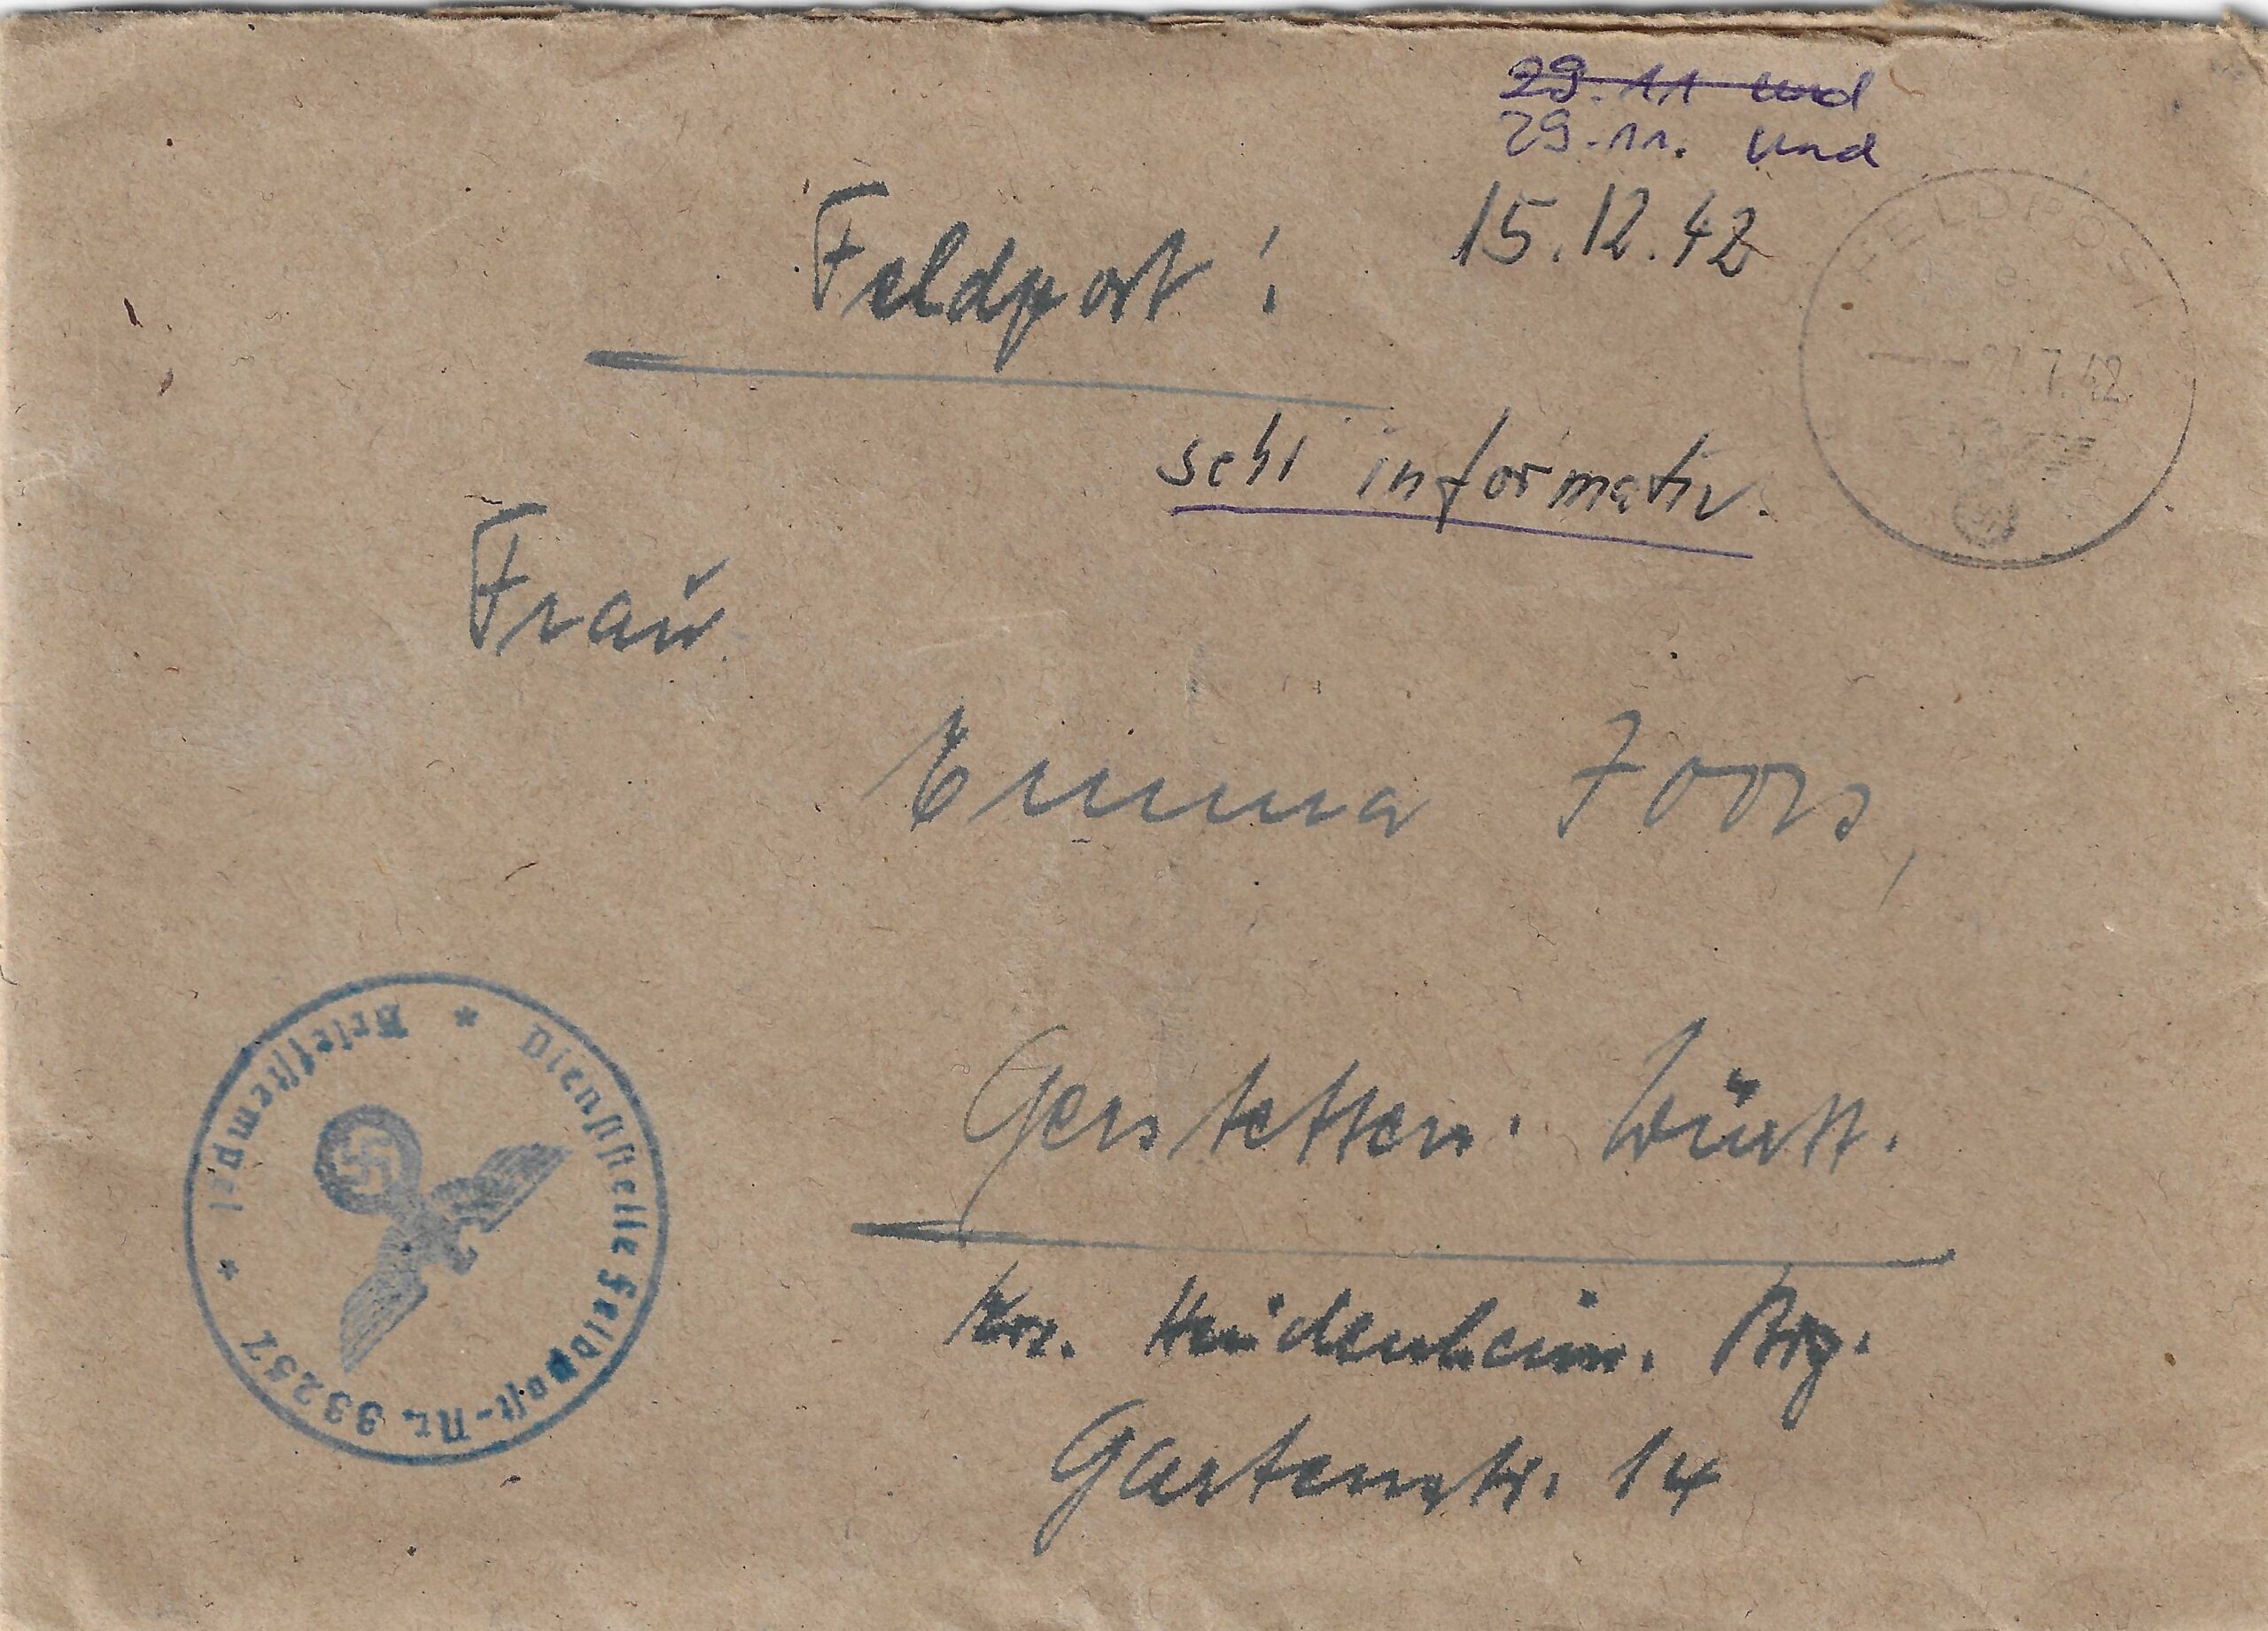 29.11 und
29.11. und
15.12.42
Feldpost!
FELDPOST
7.42
sehr informativ.
Frau
Emma Joos,
Gerstetten. Württ.
Krs. Heidenheim. Brz.
Gartenstr. 14
* Dienststelle Feldpost-Nr. 39257 * Briefstempel